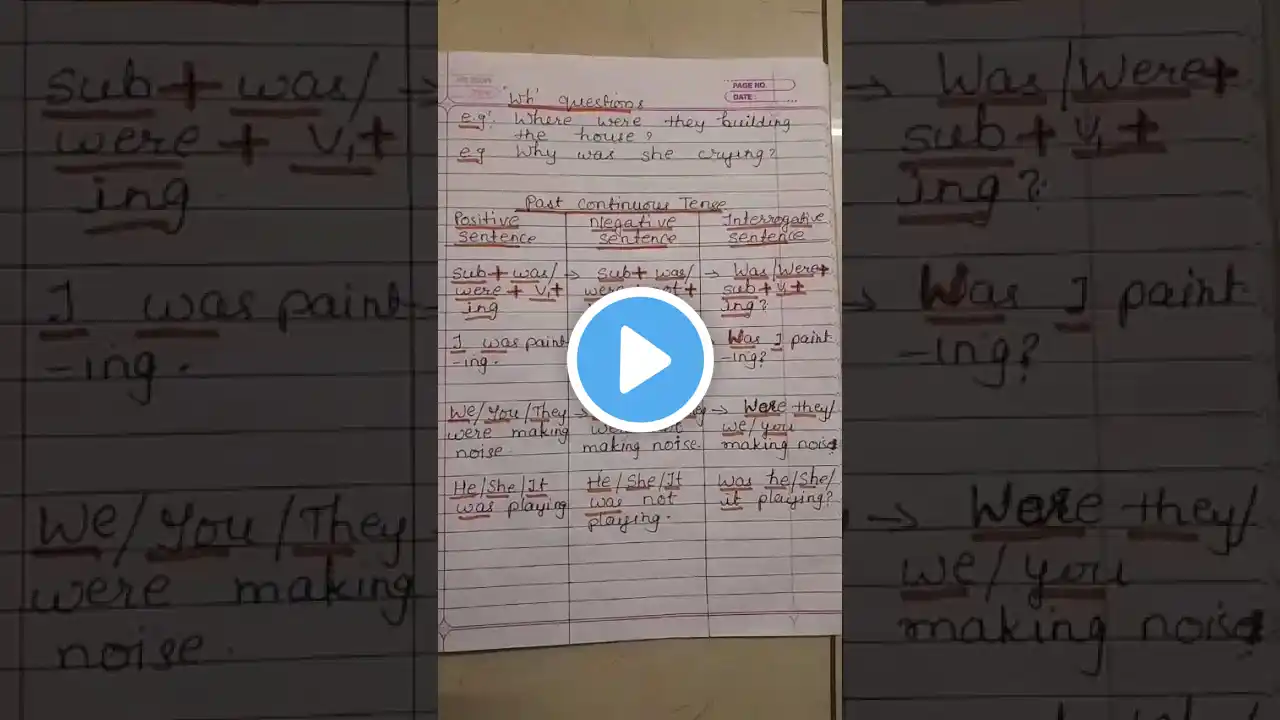 sub + was/
were + V₁ +
ing
I was paint
-ing.
We/You/They
were making
noise.
PAGE NO.
DATE:
'Wh' questions
e.g: Where were they building
the house?
e.g Why was she crying?
Past Continuous Tense
Positive
Sentence
Negative
Sentence
Interrogative
Sentence
Sub + was/
were + V₁ +
ing
→ Sub + was/
→ Was/Were +
sub + V₁ +
ing?
I was paint
-ing.
Was I paint
-ing?
We/You/They
were making
noise.
making noise.
→ Were they/
we/you
making noise
He/She/It
was playing
He/She/It
was not
playing.
Was he/She/
it playing?
→ Was/Were +
sub + V₁ +
ing?
→ Was I paint
-ing?
→ Were they/
we/you
making noise